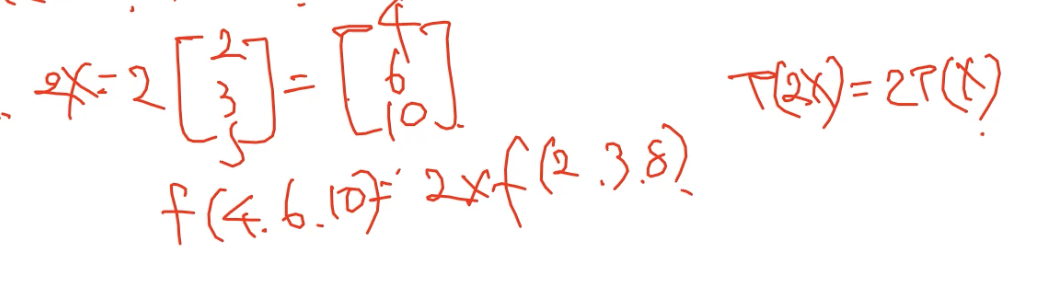 2X = 2 [2 3 5] = [4 6 10].
T(2X) = 2T(X).
f(4.6.10) = 2xf(2.3.8).